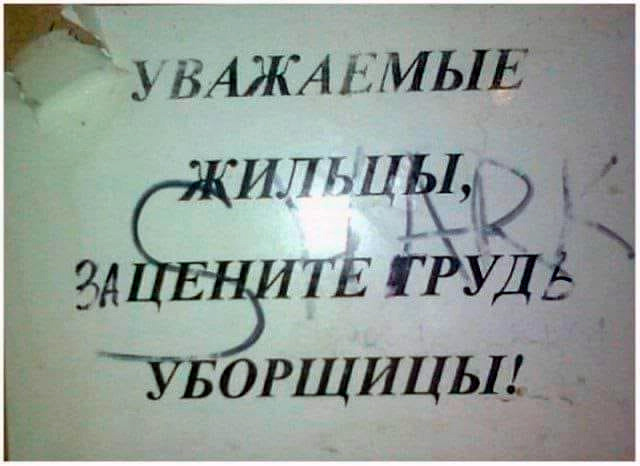 УВАЖАЕМЫЕ
ЖИЛЬЦЫ,
ЗАЦЕНИТЕ ГРУДЬ
УБОРЩИЦЫ!